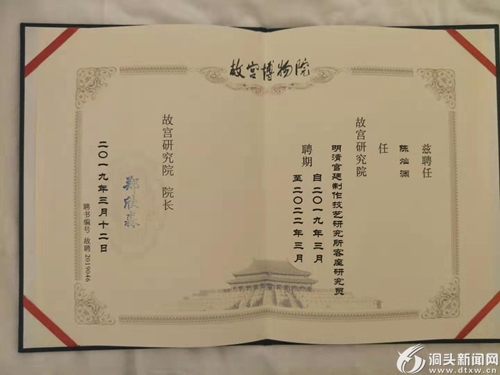 故宫博物院
兹聘任
陈灿
任
故宫研究院
明清宫廷制作技艺研究所客座研究员
聘期
自二〇一九年三月
至二〇二二年三月
故宫研究院 院长
郑欣淼
二〇一九年三月十二日
聘书编号 故聘 2019046
洞头新闻网
www.dtxw.cn